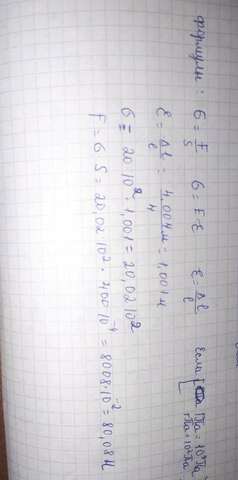 формулы: б = F/S б = F ε ε = Δl/l Если
1Па = 10
ε = Δl/l = 4.004м/4 = 1,001м
б = 20 10² · 1,001 = 20,02 10²
F = б S = 20,02 10² · 400 10⁻⁴ = 8008·10⁻² = 80,08 Н